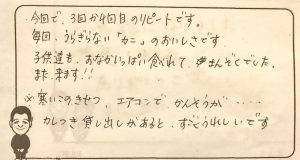 ・今回で、3回か4回目のリピートです。
毎回、うらぎらない「カニ」のおいしさです
子供達も、おなかいっぱい食べれて、まんぞくでした。
また来ます!!
※寒いこのきせつ、エアコンで かんそうが・・・・
かしつき貸し出しがあると、すごくうれしいです